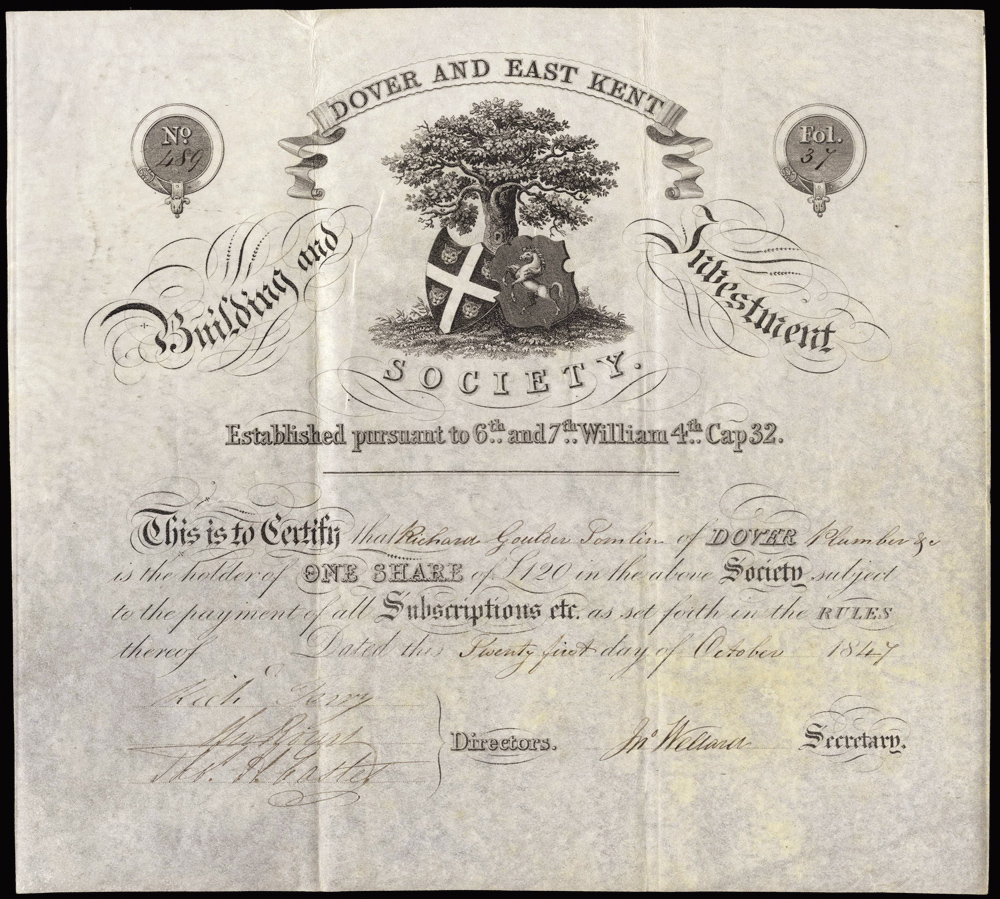 DOVER AND EAST KENT
No. 489
Fol. 37
Building and Investment
SOCIETY.
Established pursuant to 6th and 7th William 4th Cap 32.
This is to Certify that Richard Goulder Tomlin of DOVER Plumber &c
is the holder of ONE SHARE of £120 in the above Society subject
to the payment of all Subscriptions etc. as set forth in the RULES
thereof Dated this Twenty first day of October 1847
Directors.
Jno
Secretary.